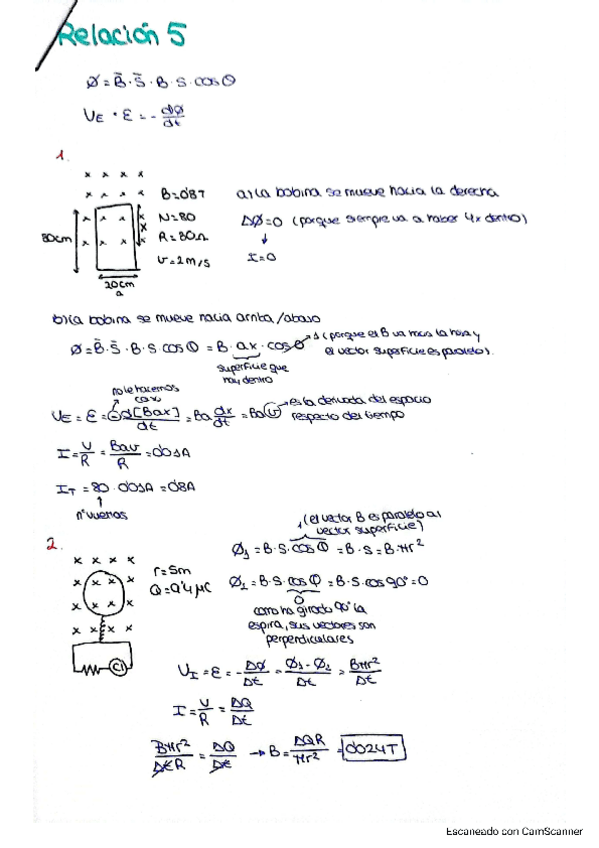 Relación 5
Ø = B̄ · S̄ = B · S · cos Θ
U_E = ε = - dØ/dt
1.
x x x x
x x x x
B = 0'8 T
N = 80
R = 80 Ω
v = 2 m/s
80cm
20cm
a
x
a) La bobina se mueve hacia la derecha
ΔØ = 0 (porque siempre va a haber 4x dentro)
↓
I = 0
b) La bobina se mueve hacia arriba/abajo
Ø = B̄ · S̄ = B · S cos Θ = B · ax · cos Θ → 1 (porque el B va hacia la hoja y
el vector superficie es paralelo).
superficie que
hay dentro
no le hacemos
caso
U_E = ε = - d[Bax]/dt = Ba dx/dt = Ba v → es la derivada del espacio
respecto del tiempo
I = V/R = Bav/R = 0'01A
I_T = 80 · 0'01A = 0'8A
↑
nº vueltas
2.
x x x x
r = 5m
Q = 9'4 μC
CI
1 (el vector B es paralelo al
vector superficie)
Ø₁ = B · S · cos Θ = B · S = B · πr²
Ø₂ = B · S · cos Θ = B · S · cos 90° = 0
0
como ha girado 90° la
espira, sus vectores son
perpendiculares
U_I = ε = - ΔØ/Δt = Ø₁ - Ø₂/Δt = Bπr²/Δt
I = V/R = ΔQ/Δt
Bπr²/ΔtR = ΔQ/Δt → B = ΔQR/πr² = 0'024 T
Escaneado con CamScanner